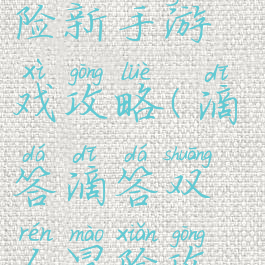 险新手游
xì gōng lüè dī
戏攻略(滴
dá dī dá shuāng
答滴答双
rén mào xiǎn gōng
人冒险攻